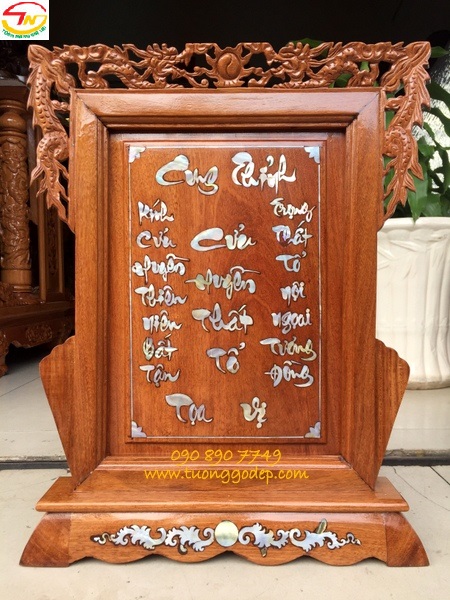 TN
Cung Thỉnh
Kính Cửu Huyền Thiên Niên Bất Tận
Cửu Huyền Thất Tổ
Trọng Thất Tổ Nội Ngoại Tương Đồng
Tọa Vị
090 890 7749
www.tuonggodep.com